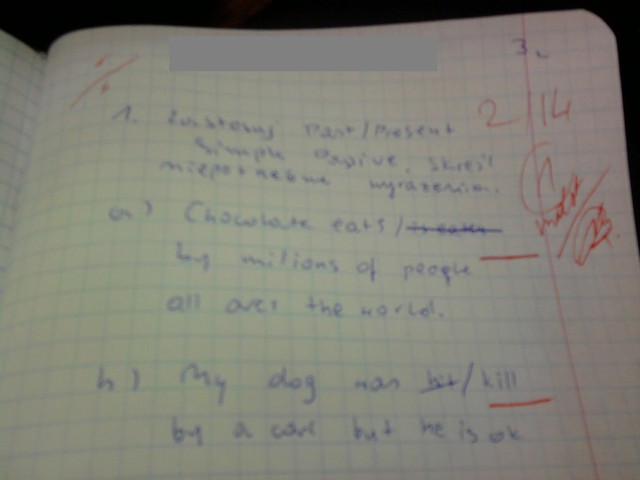 3
2/14
1. Zastosuj Past/Present
Simple Passive. Skreśl
niepotrzebne wyrażenia.
a) Chocolate eats / is eaten
by milions of people
all over the world.
b) My dog was hit / kill
by a care but he is ok